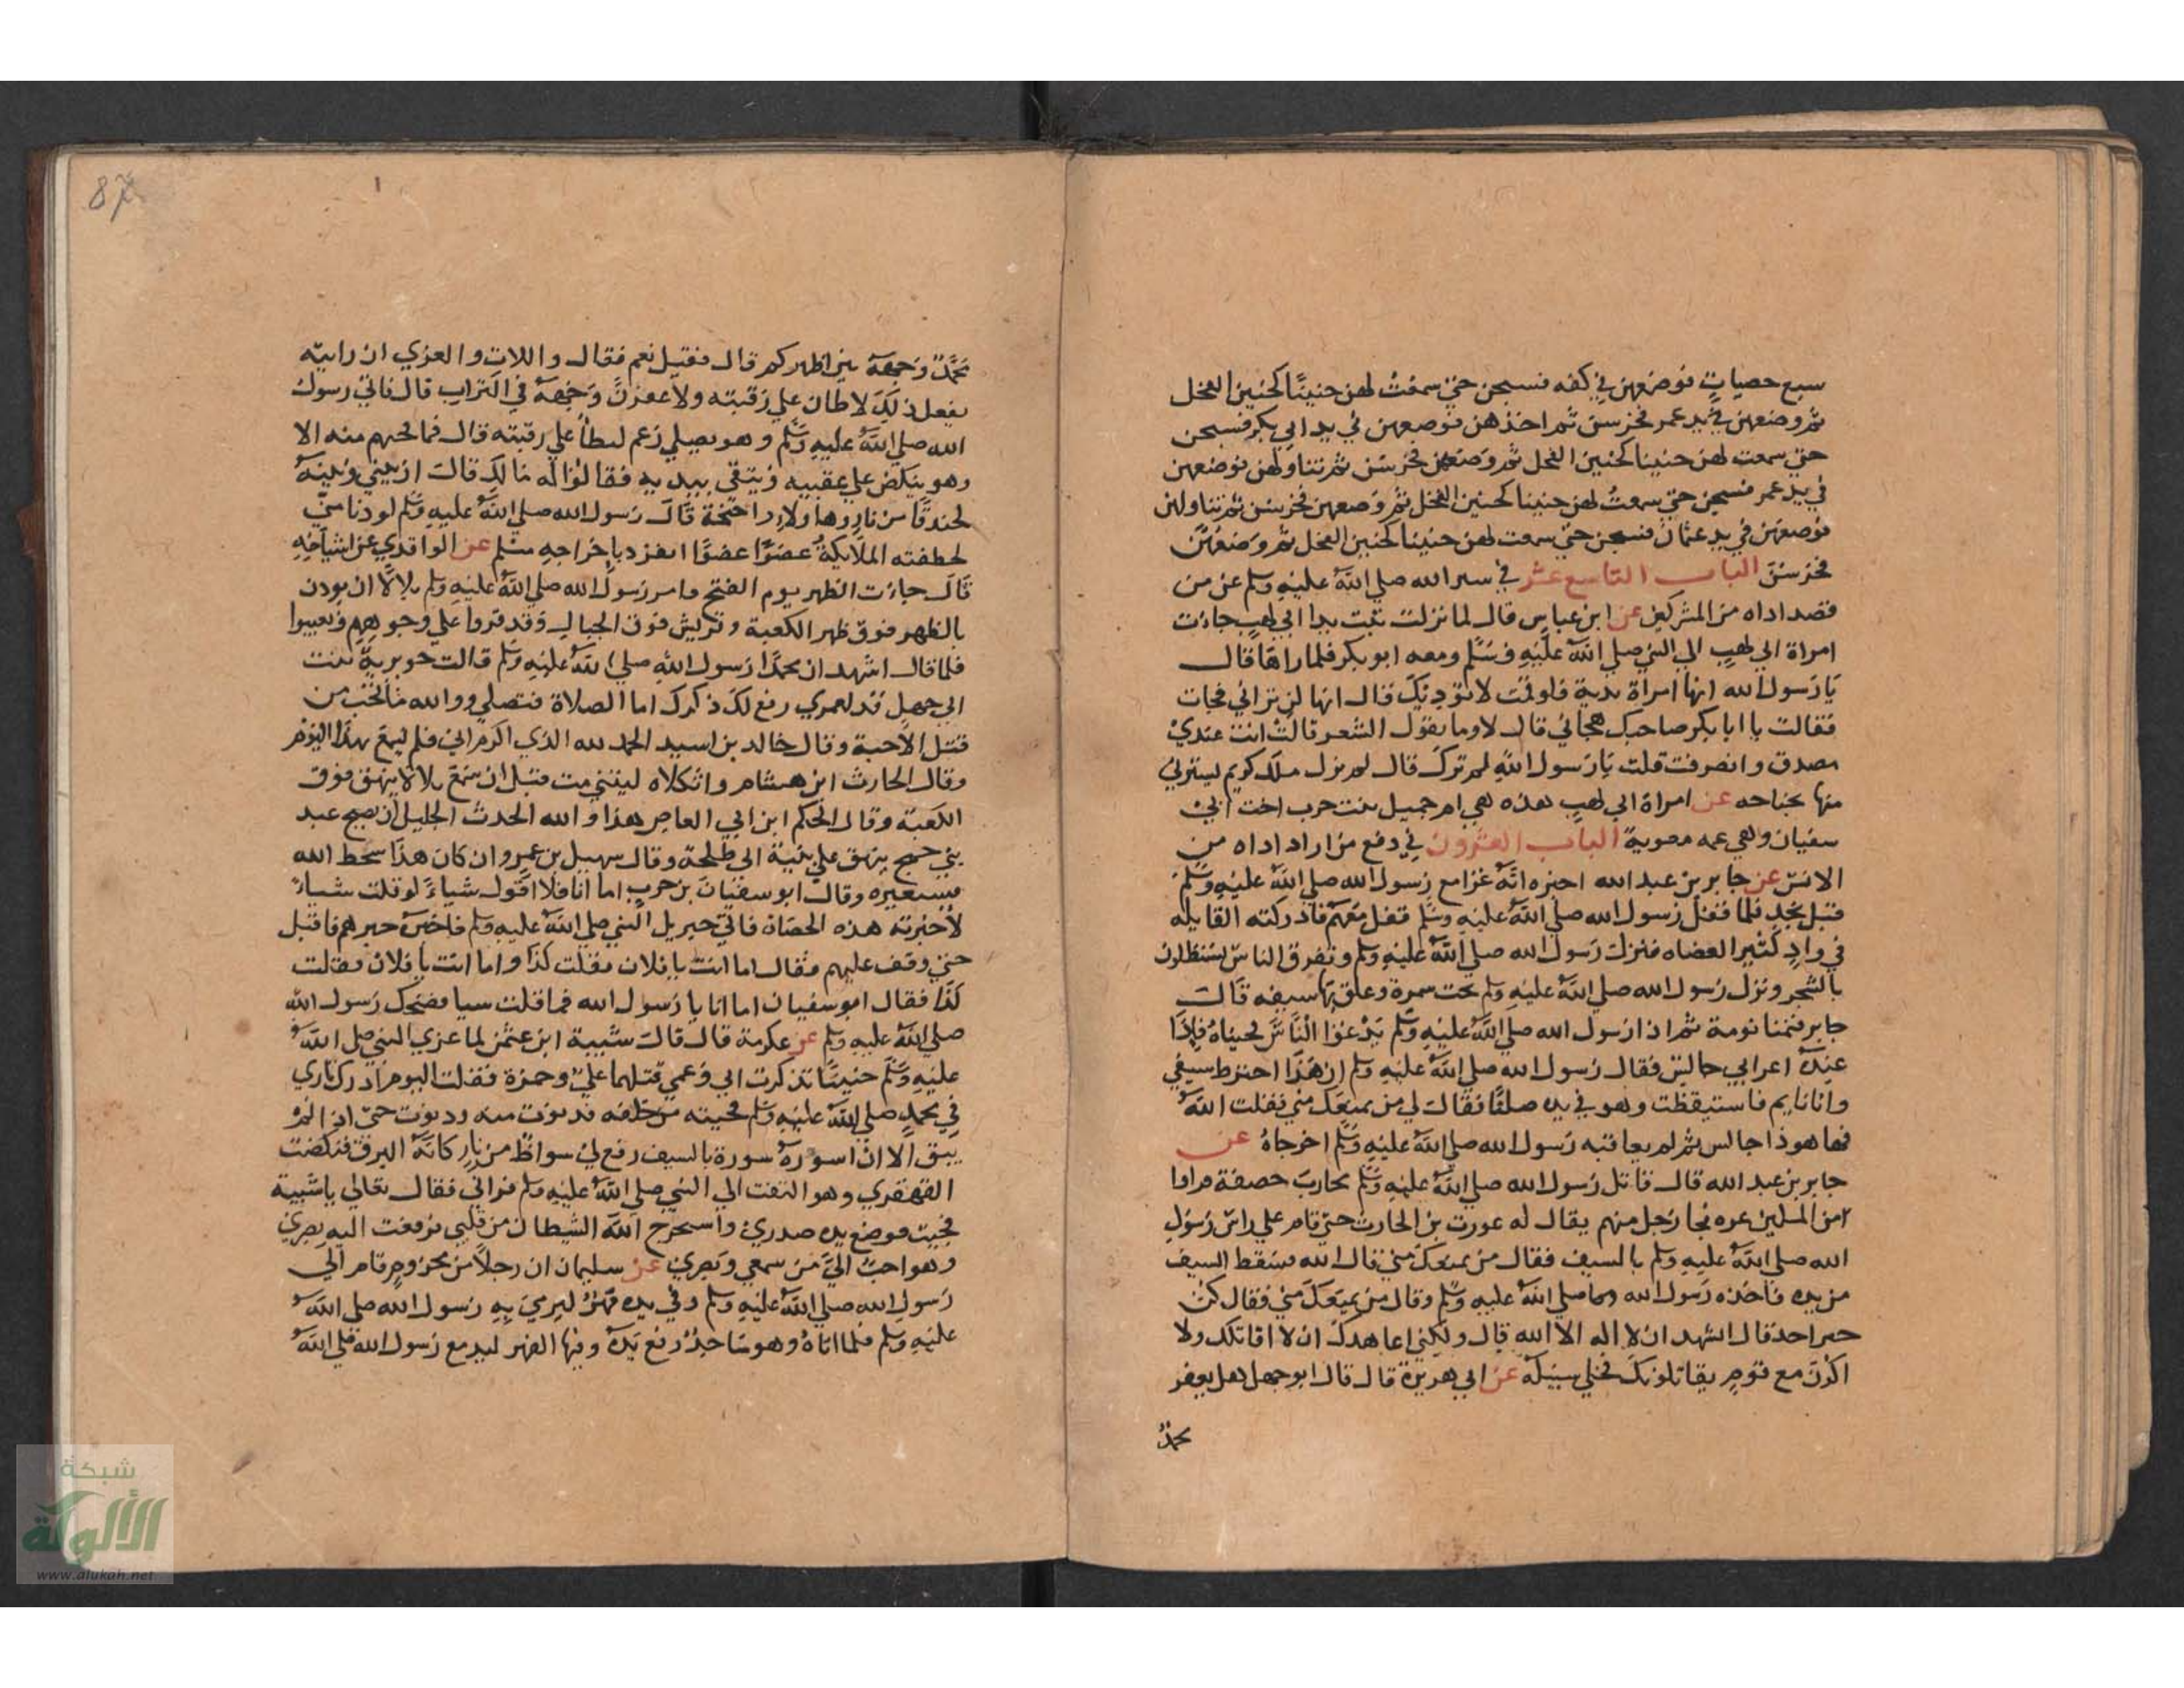 سبع حصيات فوضعهن في كفه فسبحن حتى سمعت لهن حنينا كحنين النخل
ثم وضعهن في يد عمر فخرسن ثم اخذهن فوضعهن في يد ابي بكر فسبحن
حتى سمعت لهن حنينا كحنين النخل ثم وضعهن فخرسن ثم تناولهن فوضعهن
في يد عمر فسبحن حتى سمعت لهن حنينا كحنين النخل ثم وضعهن فخرسن ثم تناولهن
فوضعهن في يد عثمان فسبحن حتى سمعت لهن حنينا كحنين النخل ثم وضعهن
فخرسن الباب التاسع عشر في ستر الله صلي الله عليه وسلم عن من
قصد اداه من المشركين عن ابن عباس قال لما نزلت تبت يدا ابي لهب جاءت
امراة ابي لهب الي النبي صلي الله عليه وسلم ومعه ابو بكر فلما راها قال
يا رسول الله انها امراة بدية فلو قمت لا تؤديك قال انها لن تراني فجات
فقالت يا ابا بكر صاحبك هجاني قال لا وما يقول الشعر قالت انت عندي
مصدق وانصرفت قلت يا رسول الله لم ترك قال لم يزل ملك كريم يسترني
منها بجناحه عن امراة ابي لهب هذه هي ام جميل بنت حرب اخت ابي
سفيان وهي عمه معوية الباب العشرون في دفع من اراد اداه من
الانس عن جابر بن عبد الله اخبره انه غزا مع رسول الله صلي الله عليه وسلم
قبل نجد فلما قفل رسول الله صلي الله عليه وسلم قفل معهم فادركته القايله
في واد كثير العضاه فنزل رسول الله صلي الله عليه وسلم وتفرق الناس يستظلون
بالشجر ونزل رسول الله صلي الله عليه وسلم تحت سمرة وعلق بها سيفه قال
جابر فنمنا نومة ثم اذا رسول الله صلي الله عليه وسلم يدعوا الناس فجيناه فاذا
عنده اعرابي جالس فقال رسول الله صلي الله عليه وسلم ان هذا اخترط سيفي
وانا نايم فاستيقظت وهو في يده صلتا فقال لي من يمنعك مني فقلت الله
فها هو ذا جالس ثم لم يعاقبه رسول الله صلي الله عليه وسلم اخرجاه عن
جابر بن عبد الله قال قاتل رسول الله صلي الله عليه وسلم محارب خصفة فراوا
من المسلمين غره فجا رجل منهم يقال له عورت بن الحارث حتى قام علي راس رسول
الله صلي الله عليه وسلم بالسيف فقال من يمنعك مني قال الله فسقط السيف
من يده فاخذه رسول الله صلي الله عليه وسلم وقال من يمنعك مني فقال كن
خير احد قال اتشهد ان لا اله الا الله قال ولكني اعاهدك ان لا اقاتلك ولا
اكون مع قوم يقاتلونك فخلي سبيله عن ابي هريرة قال قال ابو جهل هل يعفر
محمد
87
محمد وجهه بين اظهركم قال فقيل نعم فقال واللات والعزي ان رايته
يفعل ذلك لاطان علي رقبته ولاعفرن وجهه في التراب قال فاتي رسول
الله صلي الله عليه وسلم وهو يصلي زعم ليطأ علي رقبته قال فما فجيهم منه الا
وهو ينكص علي عقبيه ويتقي بيديه فقالوا له مالك قال ان بيني وبينه
لخندقا من نار وهولا واجنحة قال رسول الله صلي الله عليه وسلم لو دنا مني
لخطفته الملايكة عضوا عضوا انفرد باخراجه مسلم عن الواقدي عن اشياخه
قال جاءت الظهر يوم الفتح فامر رسول الله صلي الله عليه وسلم بلالا ان يودن
بالظهر فوق ظهر الكعبة وقريش فوق الجبال وقد فروا علي وجوههم وتغيبوا
فلما قال اشهد ان محمدا رسول الله صلي الله عليه وسلم قالت جويرية بنت
ابي جهل قد لعمري رفع لك ذكرك اما الصلاة فتصلي ووالله ما نحب من
قتل الاحبة وقال خالد بن اسيد الحمد لله الذي اكرم ابي فلم يسمع بهذا اليوم
وقال الحارث ابن هشام واثكلاه ليتني مت قبل ان اسمع بلالا ينهق فوق
الكعبة وقال الحكم ابن ابي العاص هذا والله الحدث الجليل ان يصبح عبد
بني جمح ينهق علي بنية ابي طلحة وقال سهيل بن عمرو ان كان هذا سخط الله
فسيغيره وقال ابو سفيان بن حرب اما انا فلا اقول شياء لو قلت شياء
لاخبرته هذه الحصاة فاتي جبريل النبي صلي الله عليه وسلم فاخبره خبرهم فاقبل
حتى وقف عليهم فقال اما انت يا فلان فقلت كذا واما انت يا فلان فقلت
كذا فقال ابو سفيان اما انا يا رسول الله فما قلت سيا فضحك رسول الله
صلي الله عليه وسلم عن عكرمة قال قال شيبة ابن عثمن لما غزي النبي صلي الله
عليه وسلم حنينا تذكرت ابي وعمي قتلهما علي وحمزة فقلت اليوم ادرك ثاري
في محمد صلي الله عليه وسلم فجيته من خلفه فدنوت منه ودنوت حتى اذا لم
يبق الا ان اسوره سورة بالسيف رفع لي سواظ من نار كانه البرق فنكصت
القهقري وهو التفت الي النبي صلي الله عليه وسلم فراني فقال تعالي يا شيبة
فجيت فوضع يده صدري واستخرج الله الشيطان من قلبي فرفعت اليه بصري
وهو احب الي من سمعي وبصري عن سليمان ان رجلا من مخزوم قام الي
رسول الله صلي الله عليه وسلم وفي يده فهر ليرمي به رسول الله صلي الله
عليه وسلم فلما اتاه وهو ساجد رفع يده وفيها الفهر ليدمع رسول الله صلي الله
شبكة
الألوكة
www.alukah.net